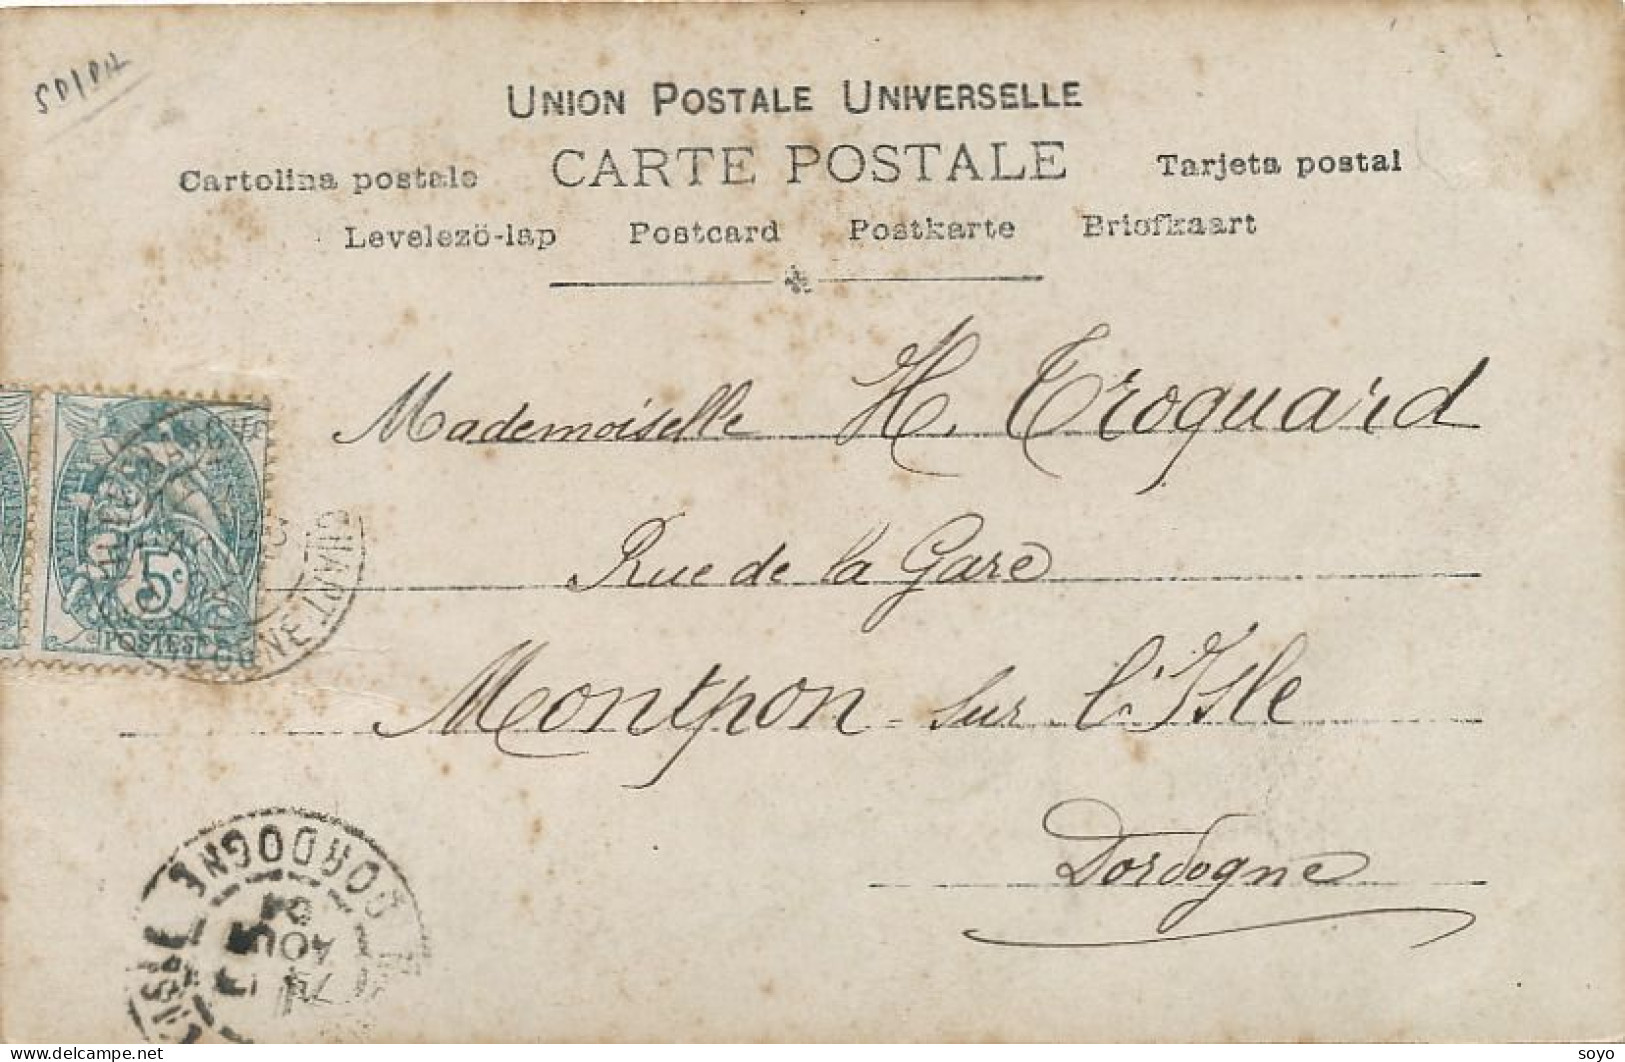 UNION POSTALE UNIVERSELLE
CARTE POSTALE
Cartolina postale
Tarjeta postal
Levelezö-lap Postcard Postkarte Briefkaart
Mademoiselle H. Troquard
Rue de la Gare
Montpon sur l'Isle
Dordogne
5c
POSTES
DORDOGNE
AOUT
04
delcampe.net
soyo